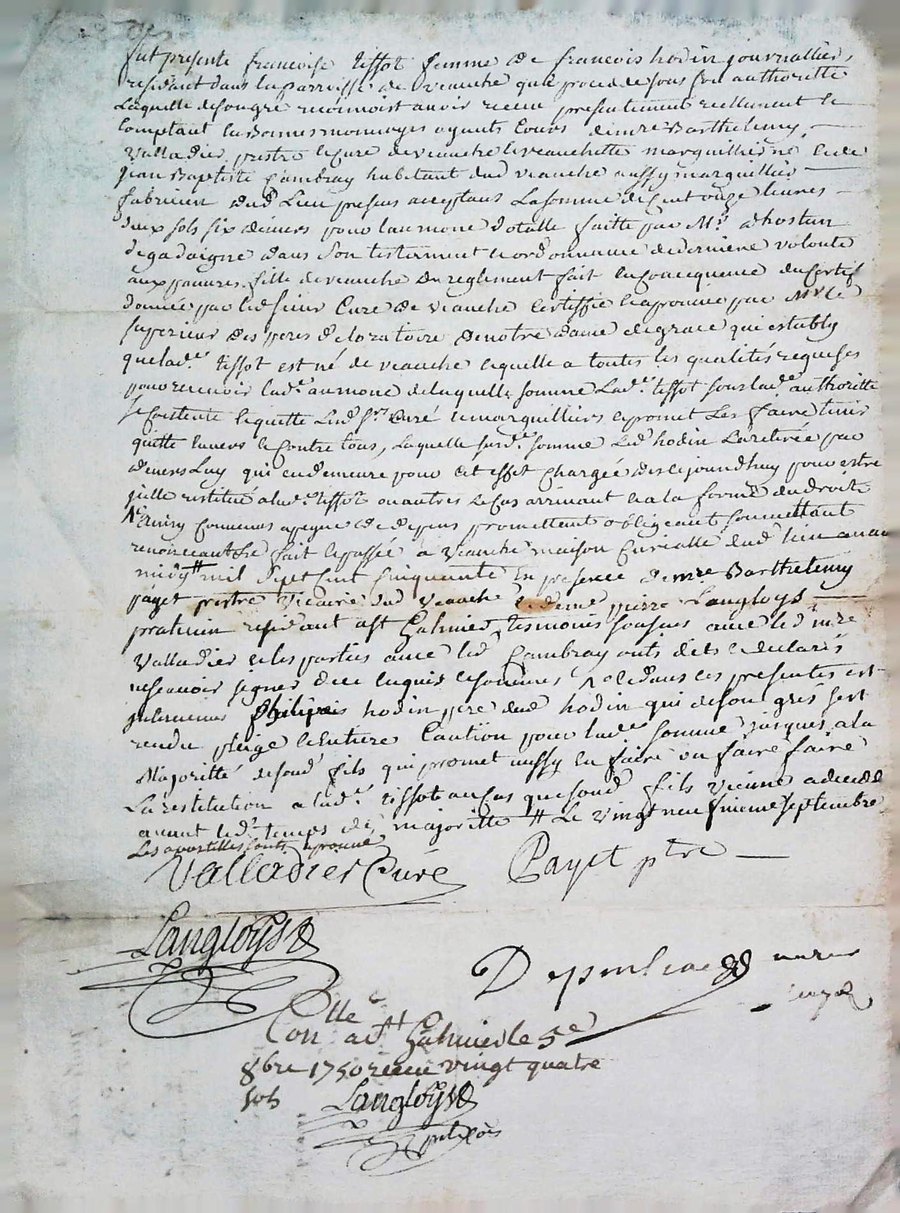 fut presente francoise tissot femme de francois hodin journallier,
residant dans la parroisse de veauche que procede de sous son authoritte
Laquelle de son gre reconnoist avoir receu presentement reellement le
Comptant en bonnes monnoyes ayants Cours de mre Barthelemy
Valladier prestre le cure de veauche le veauchette marguillier ne et de
jean Baptiste Cambray habitant dud veauche aussy marguillier
fabricien dud Lieu presens acceptans La somme de cent onze livres
deux sols six deniers pour l'aumone dotalle faitte par Mr. dhostun
de gadaigne dans son testement et ordonnance de derniere volonte
aux pauvres fille de veauche du reglement fait en consequence du Certif
donnée par led sieur Cure de veauche Certiffie et aprouvé par Mr le
superieur des peres de loratoire de notre dame de grace qui establÿ
que lad.e tissot est né de veauche et quelle a toutes les qualités requises
pour recevoir lad.e aumone de laquelle somme Lad.e tissot sous lad.e authoritte
se Contente et quitte Led sr. Curé et marguilliers et promet Les faire tenir
quitte Envers et Contre tous, Laquelle susd.e somme Led hodin La retirée par
devers Luy qui en demeure pour Cet effet Chargée des ce jourdhuy pour estre
par elle restitue a lad.e tissot ou autres le Cas arrivant et a la forme du droit
ainsy Convenus a peyne de depens promettant obligeant soumettant
renonceant &c fait et passée a veauche maison Curialle dud lieu avant
midy mil sept cent cinquante En presence de mre Barthelemy
payet prestre vicaire dud veauche et de me pierre Langloys
praticien residant a st Galmier tesmoins sousnes avec led mre
Valladier et les parties avec led Cambray onts dits et declarés
ne scavoir signer de ce enquis et sommés dans ces presentes est
intervenus philipes hodin pere dud hodin qui de son gres sest
rendu pleige et entiere Caution pour lad.e somme jusques a la
Majoritté de sond fils qui promet aussy en faire ou faire faire
La restitution a lad.e tissot au cas que sond fils vienne a deceder
avant led.t temps de majoritte # Le vingt neufvieme septembre
Les apostilles sonts aprouvé
Valladier Curé Payet ptre
Langloys
Con.lle a st Galmier le 5e
8bre 1750 receu vingt quatre
sols Langloys